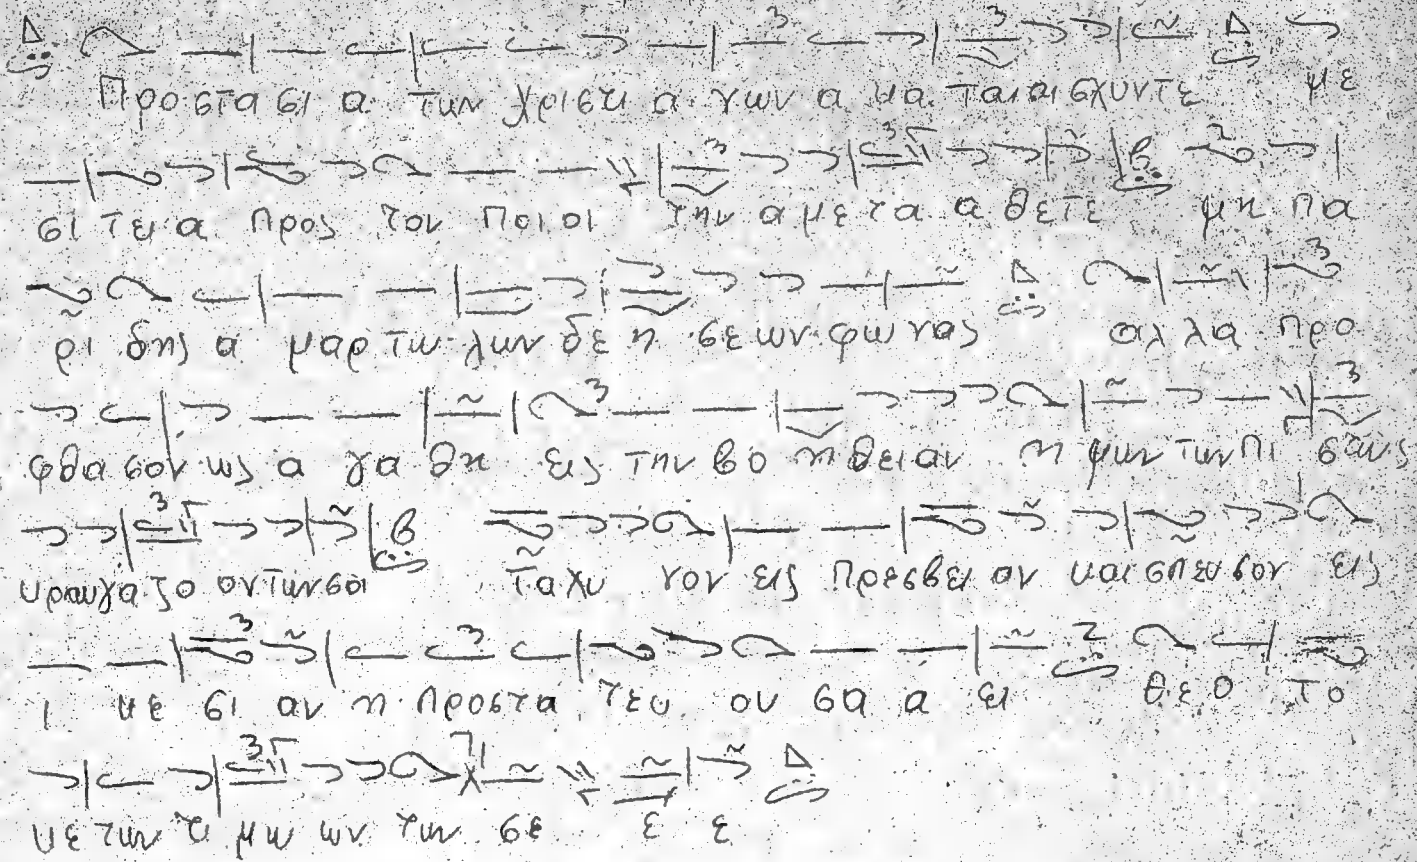 Προ στα σι α των χρι στι α νων α κα ται αι σχυντε με
σι τει α προς τον ποι οι την α με τα α θε τε μη πα
ρι δης α μαρ τω λων δε η σε ων φω νας αλ λα προ
φθα σον ως α γα θη εις την βο η θει αν η μων των πι στως
κραυγα ζο οντων σοι τα χυ νον εις πρεσβει αν και σπευ σον εις
ι κε σι αν η προστα τευ ου σα α ει θε ο το
κε των τι μω ων των σε ε ε